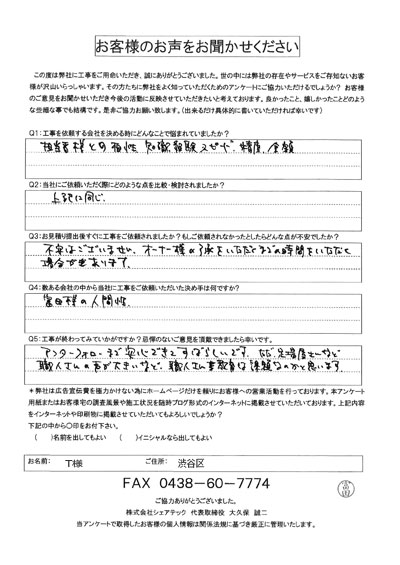 お客様のお声をお聞かせください
この度は弊社に工事をご用命いただき、誠にありがとうございました。世の中には弊社の存在やサービスをご存知ないお客
様が沢山いらっしゃいます。その方たちに弊社をよく知っていただくためのアンケートにご協力いただけるでしょうか？ お客様
のご意見をお聞かせいただき今後の活動に反映させていただきたいと考えております。良かったこと、嬉しかったことどのよう
な些細な事でも結構です。是非ご協力お願い致します。（出来るだけ具体的に書いていただければ幸いです）
Q1：工事を依頼する会社を決める時にどんなことで悩まれていましたか？
担当者様との相性 知識 経験 スピード、精度、金額
Q2：当社にご依頼いただく際にどのような点を比較・検討されましたか？
上記に同じ。
Q3：お見積り提出後すぐに工事をご依頼されましたか？もしご依頼されなかったとしたらどんな点が不安でしたか？
不安はございません。オーナー様の了承をいただくまでの時間をいただく
場合があります。
Q4：数ある会社の中から当社に工事をご依頼いただいた決め手は何ですか？
富田様の人間性。
Q5：工事が終わってみていかがですか？忌憚のないご意見を頂戴できましたら幸いです。
アフターフォローまで安心できてすばらしいです。
職人さんの声が大きいなど、職人さん事教育は課題なのかと思います
＊弊社は広告宣伝費を極力かけない為にホームページだけを頼りにお客様への営業活動を行っております。本アンケート
用紙またはお客様宅の調査風景や施工状況を随時ブログ形式のインターネットに掲載させていただいております。上記内容
をインターネットや印刷物に掲載させていただいてもよろしいでしょうか？
下記の中から〇印をお付け下さい。
（　）名前を出してもよい　（　）イニシャルなら出してもよい
お名前： T様 ご住所： 渋谷区
FAX 0438-60-7774
ご協力ありがとうございました。
株式会社シェアテック 代表取締役 大久保 誠二
当アンケートで取得したお客様の個人情報は関係法規に基づき厳正に管理いたします。